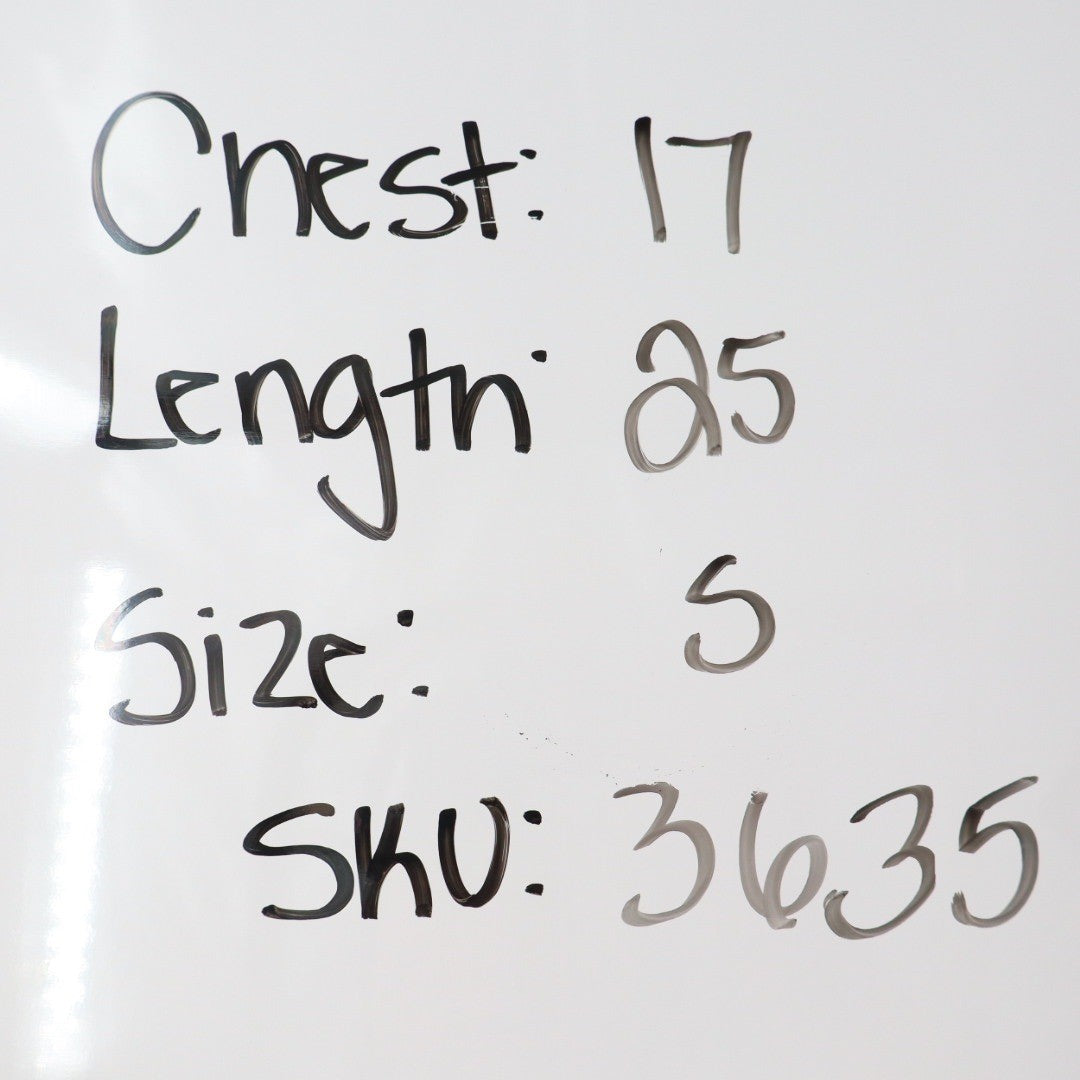 Chest: 17
Length: 25
Size: S
SKU: 3635